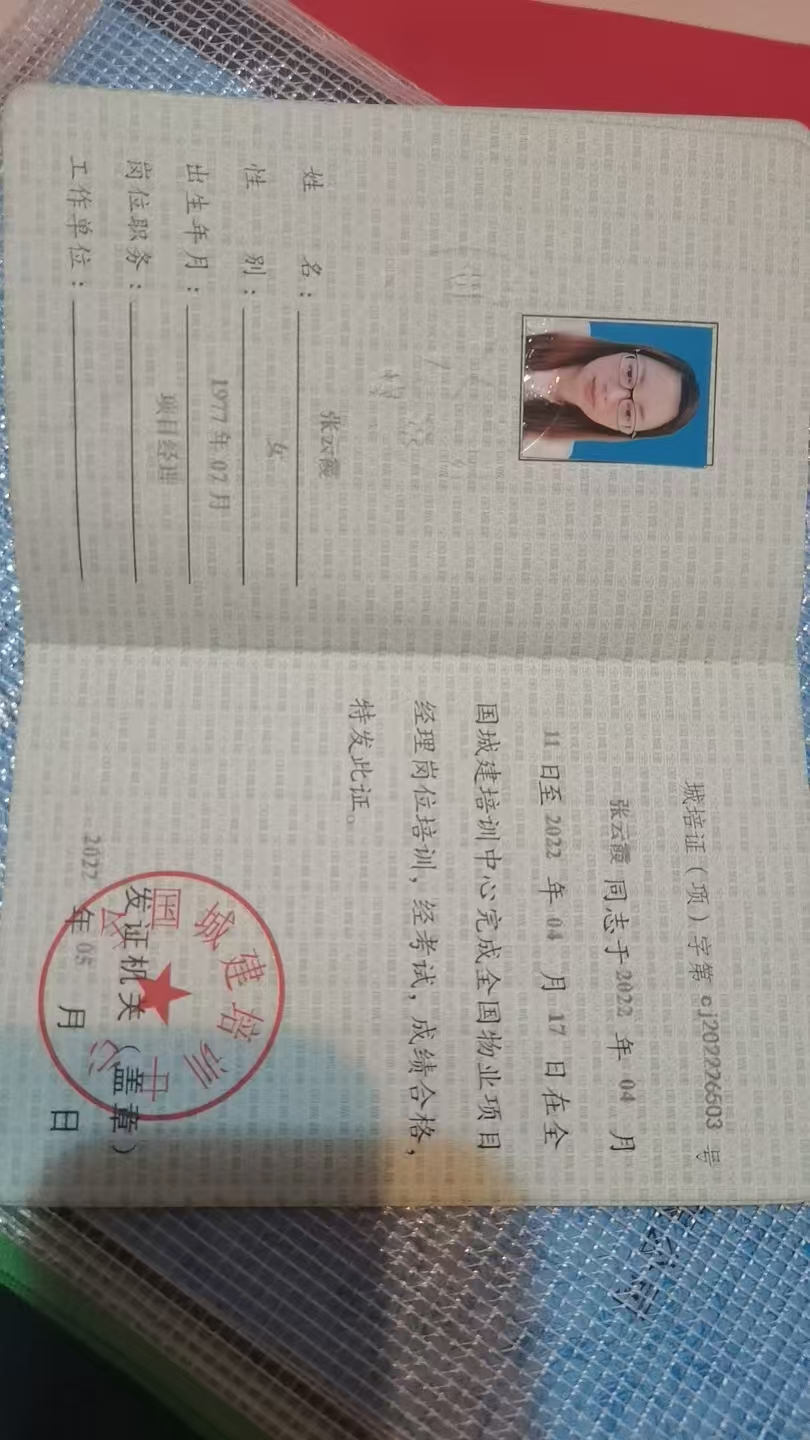 姓 名：张云霞
性 别：女
出生年月：1977年07月
岗位职务：项目经理
工作单位：
城培证（项）字第cj202226503号
张云霞同志于2022年04月
11日至2022年04月17日在全
国城建培训中心完成全国物业项目
经理岗位培训，经考试，成绩合格，
特发此证。
发证机关（盖章）
2022年05月 日
全国城建培训中心